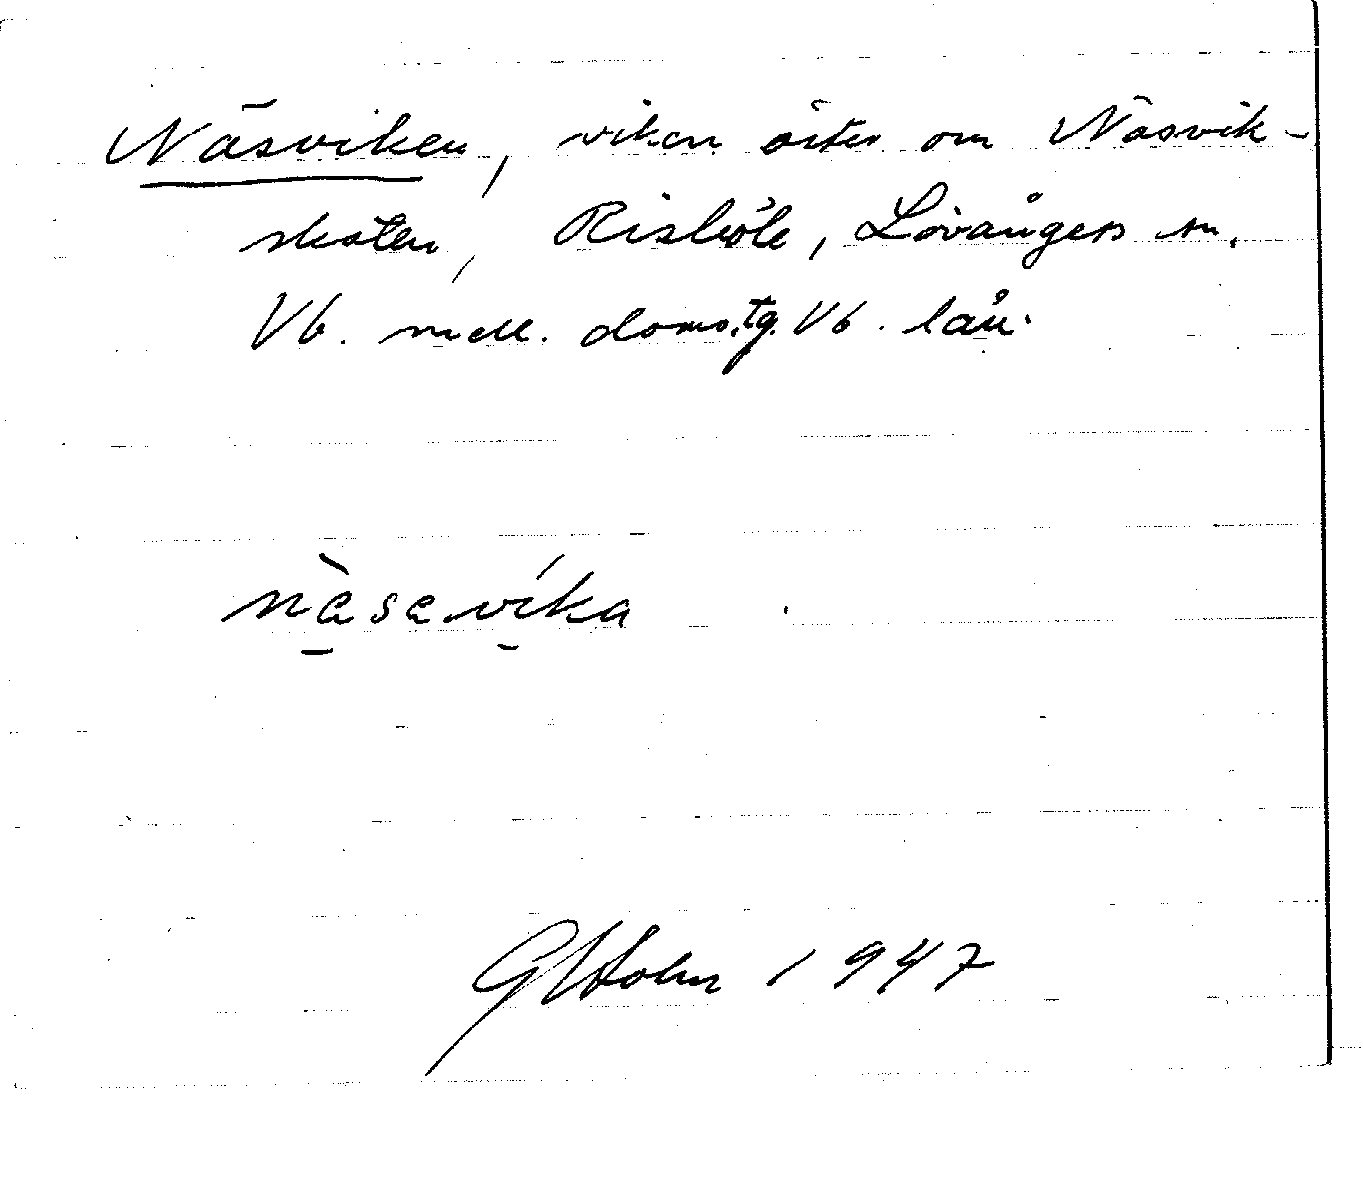 Näsviken, viken öster om Näsvik-
skaten, Risböle, Lövångers sn.
Vb. mell. doms.tg. Vb. län.
nèsevíka
G Holm 1947